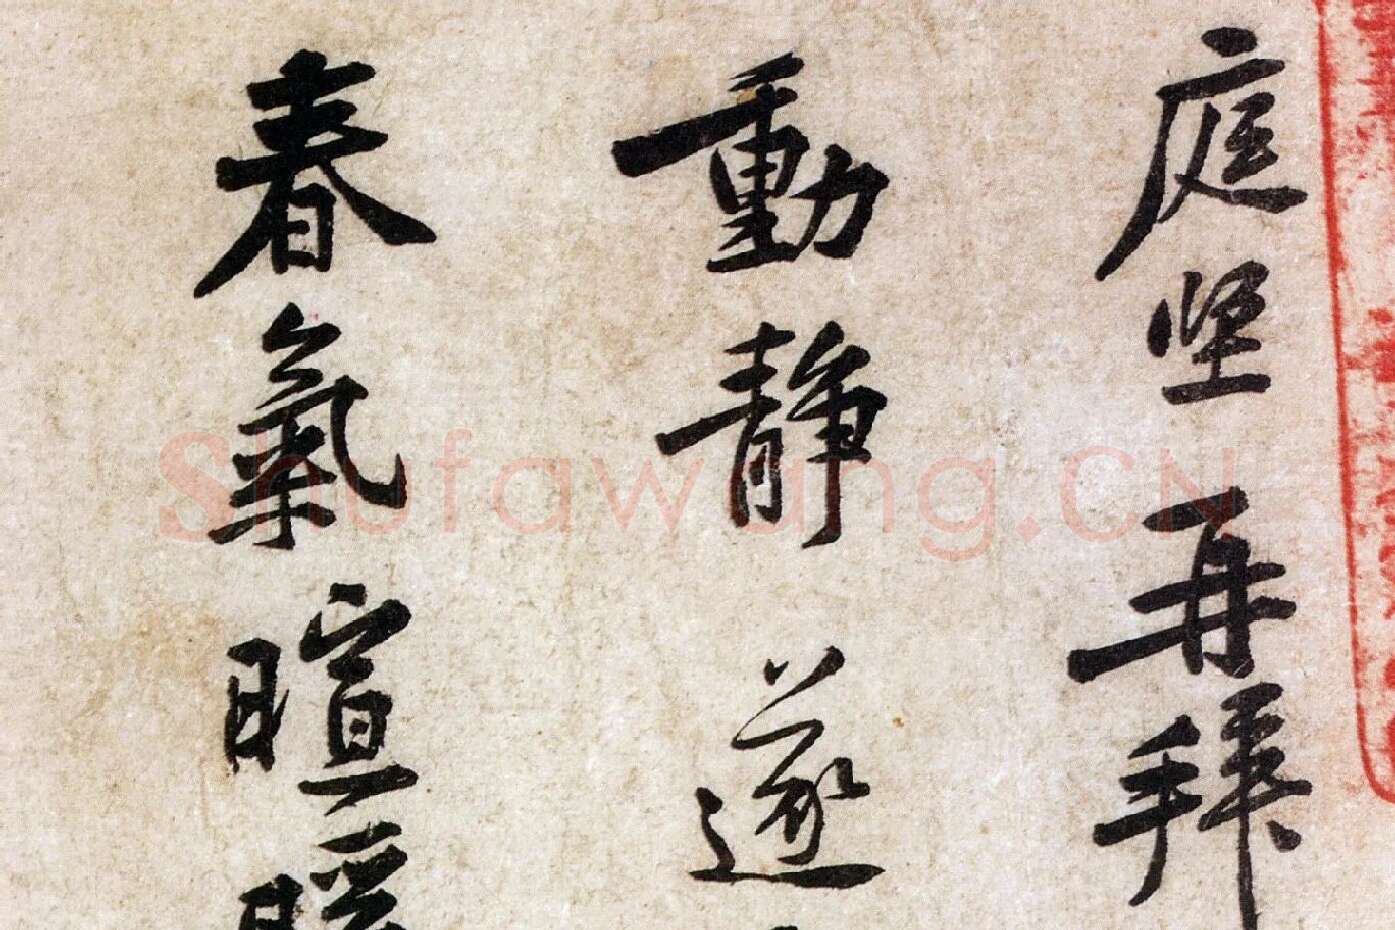 庭坚再拜
動靜遂
春氣暄暖
Shufawang.CN